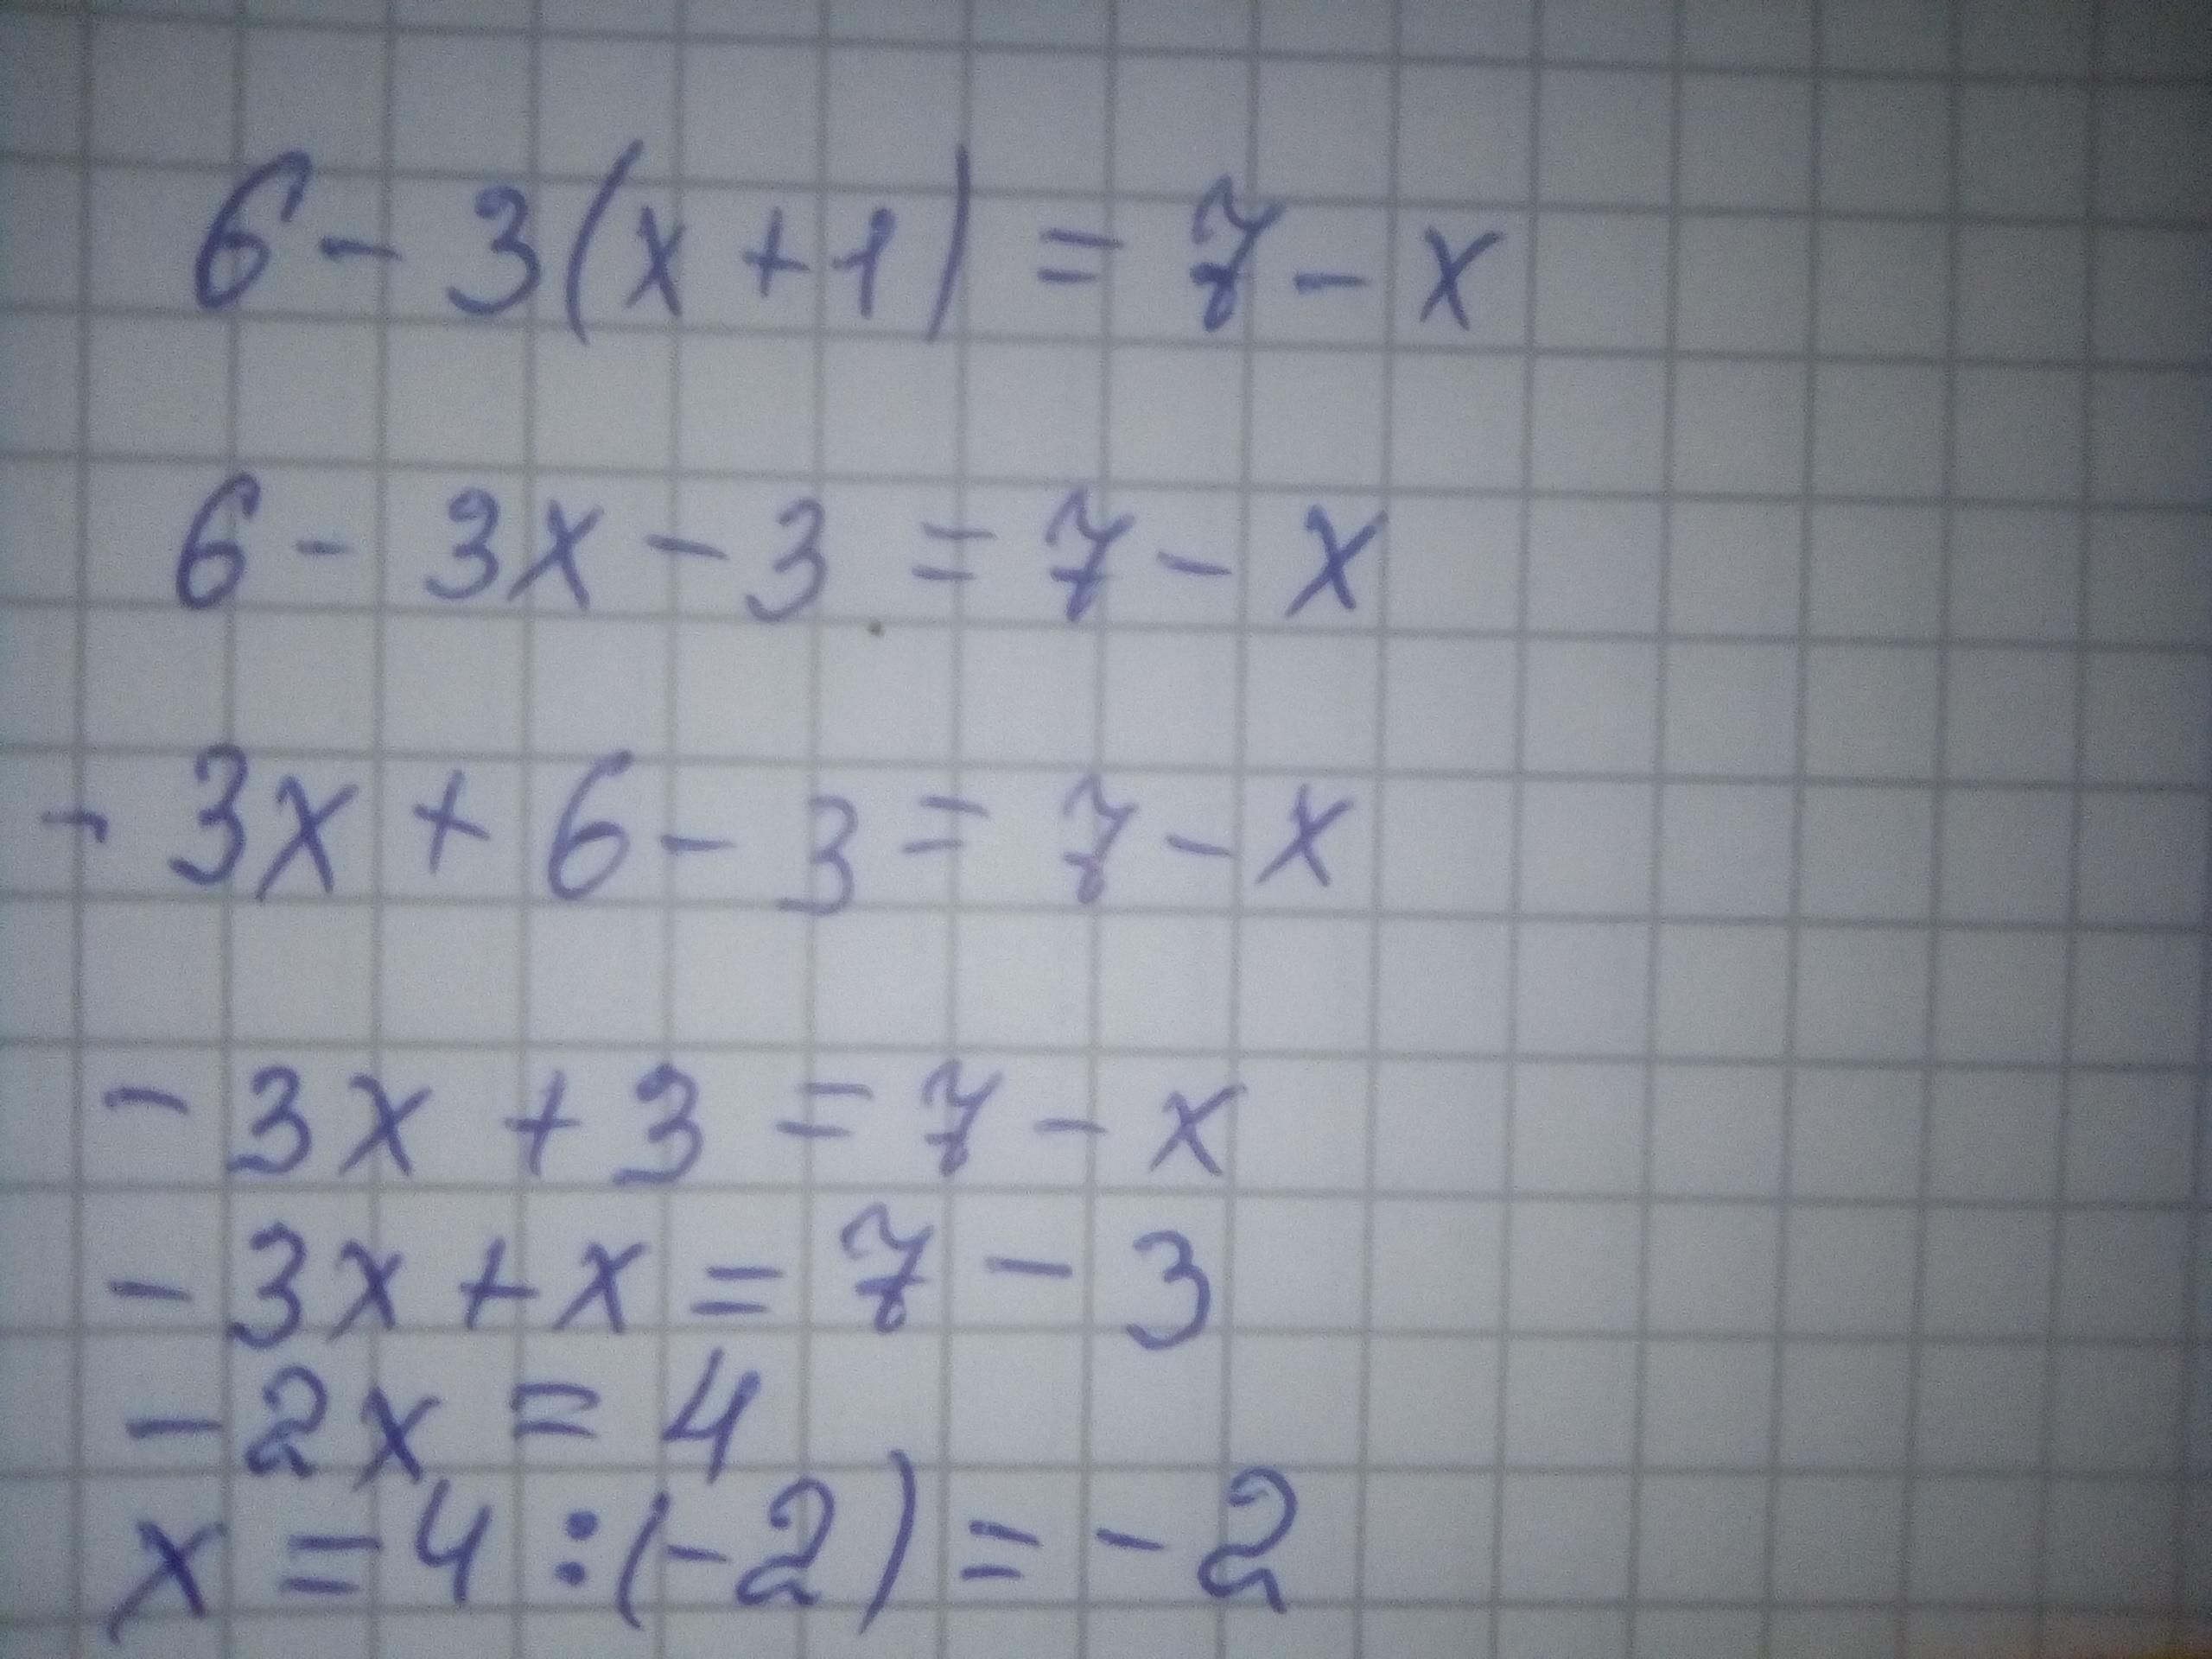 6 - 3(x + 1) = 7 - x
6 - 3x - 3 = 7 - x
- 3x + 6 - 3 = 7 - x
- 3x + 3 = 7 - x
- 3x + x = 7 - 3
- 2x = 4
x = 4 : (-2) = - 2